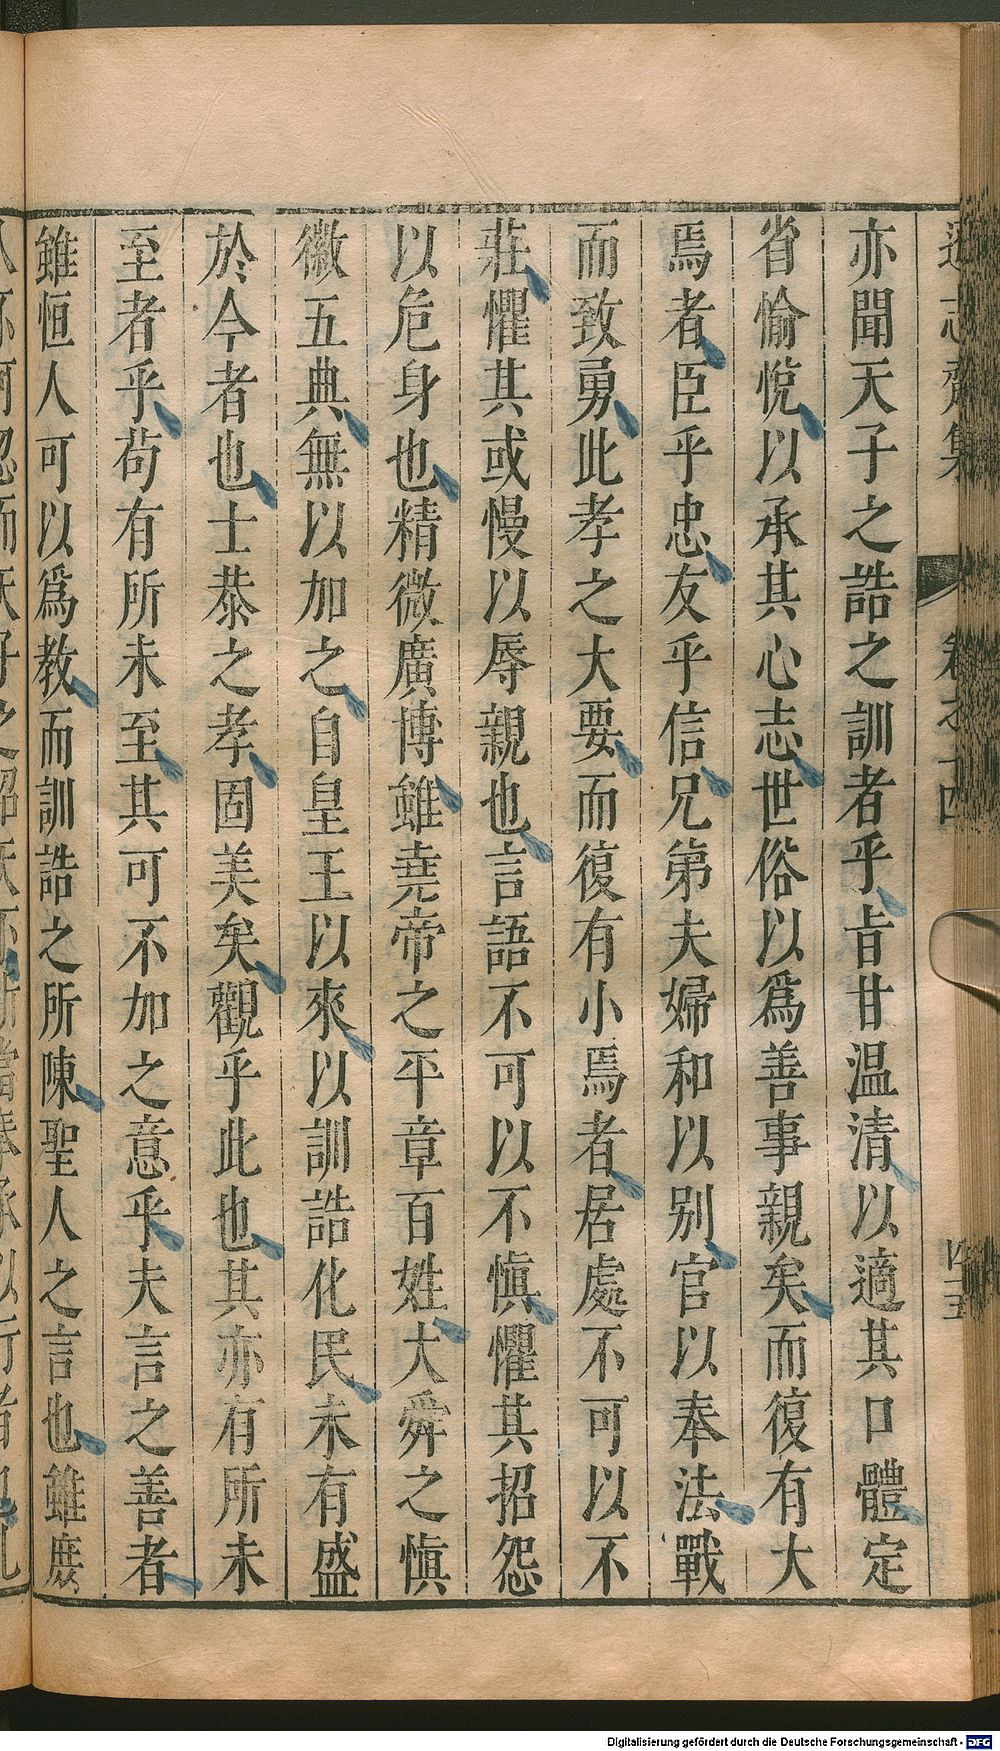 遜志齋集 卷之十四 四五
亦聞天子之誥之訓者乎旨甘温清以適其口體定
省愉悅以承其心志世俗以爲善事親矣而復有大
焉者臣乎忠友乎信兄第夫婦和以别官以奉法戰
而致勇此孝之大要而復有小焉者居處不可以不
莊懼其或慢以辱親也言語不可以不愼懼其招怨
以危身也精微廣博雖堯帝之平章百姓大舜之愼
徽五典無以加之自皇王以來以訓誥化民未有盛
於今者也士恭之孝固美矣觀乎此也其亦有所未
至者乎苟有所未至其可不加之意乎夫言之善者
雖恒人可以爲教而訓誥之所陳聖人之言也雖廢
Digitalisierung gefördert durch die Deutsche Forschungsgemeinschaft - DFG